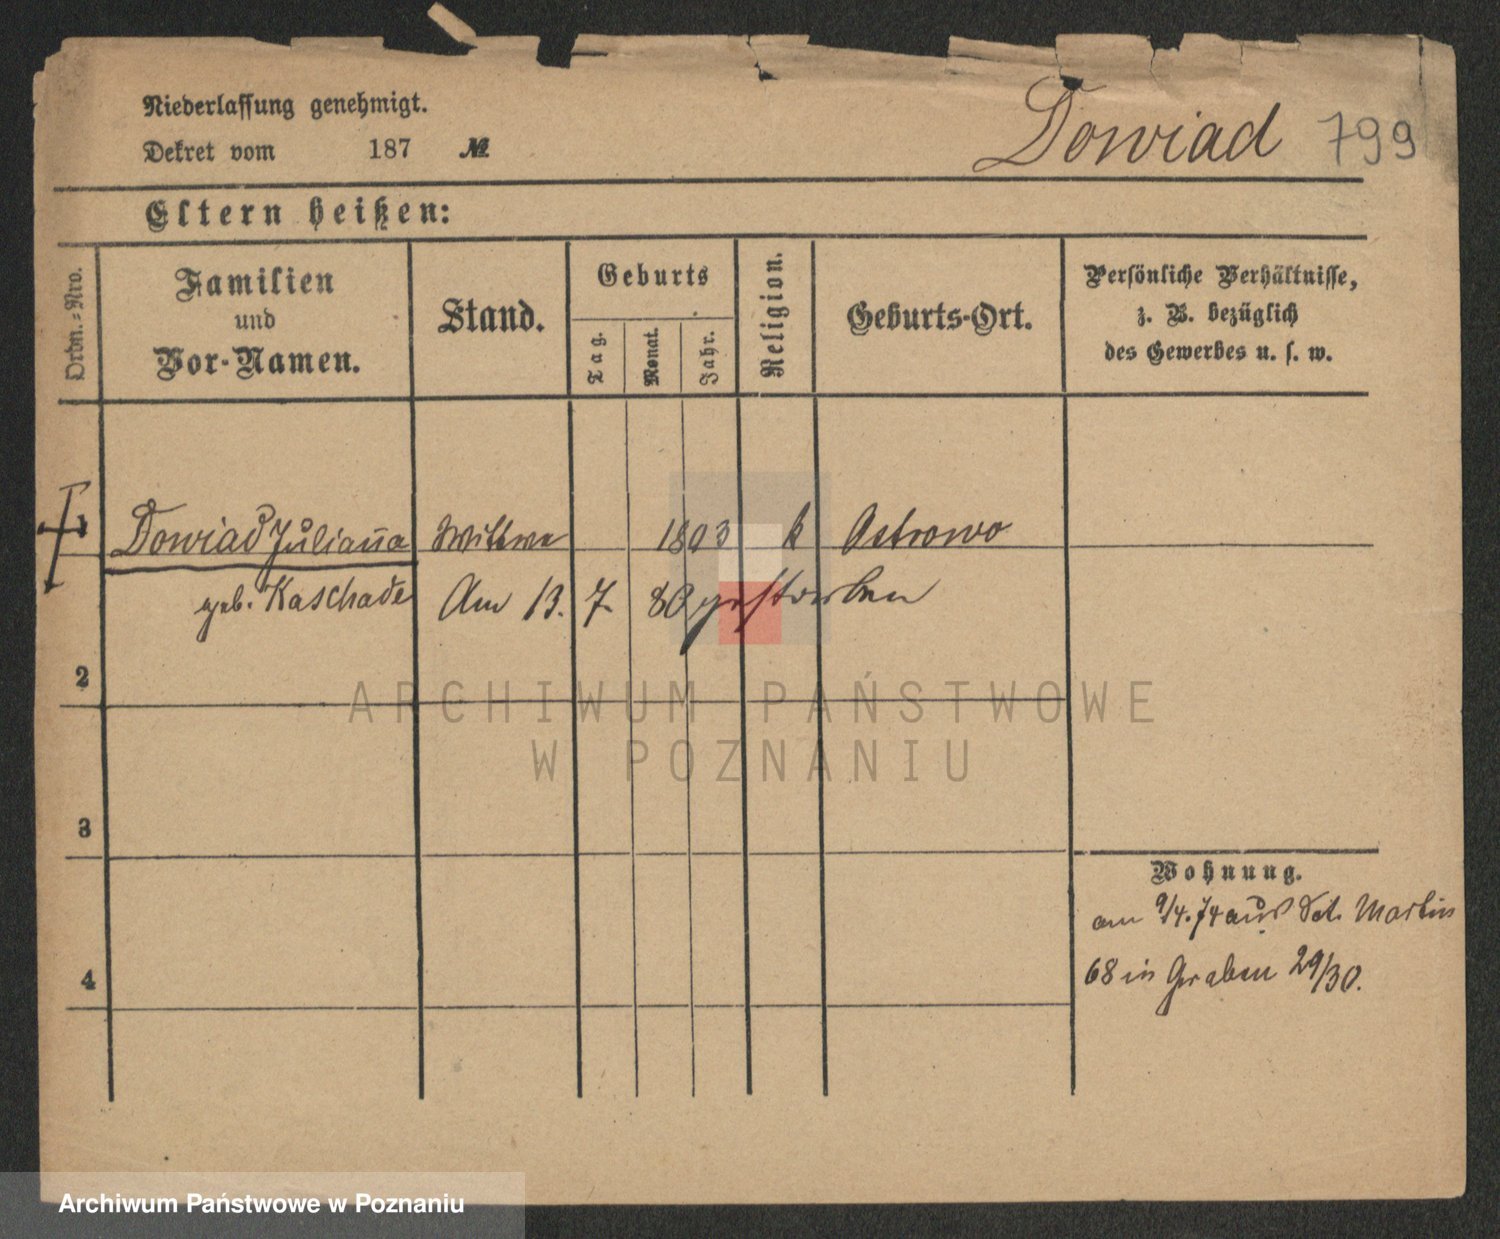 Niederlassung genehmigt.
Dekret vom 187 №
Dowiad 799
Eltern heißen:
Ordn.-Nro.
Familien
und
Vor-Namen.
Stand.
Geburts
Tag.
Monat.
Jahr.
Religion.
Geburts-Ort.
Persönliche Verhältnisse,
z. B. bezüglich
des Gewerbes u. s. w.
Dowiad Juliana Wittwe 1803 k Ostrowo
geb. Kaschade Am 13. 7. 80 gestorben
2
3
4
Wohnung.
am 9/4. 74 aus Sct. Martin
68 in Graben 29/30.
ARCHIWUM PAŃSTWOWE
W POZNANIU
Archiwum Państwowe w Poznaniu